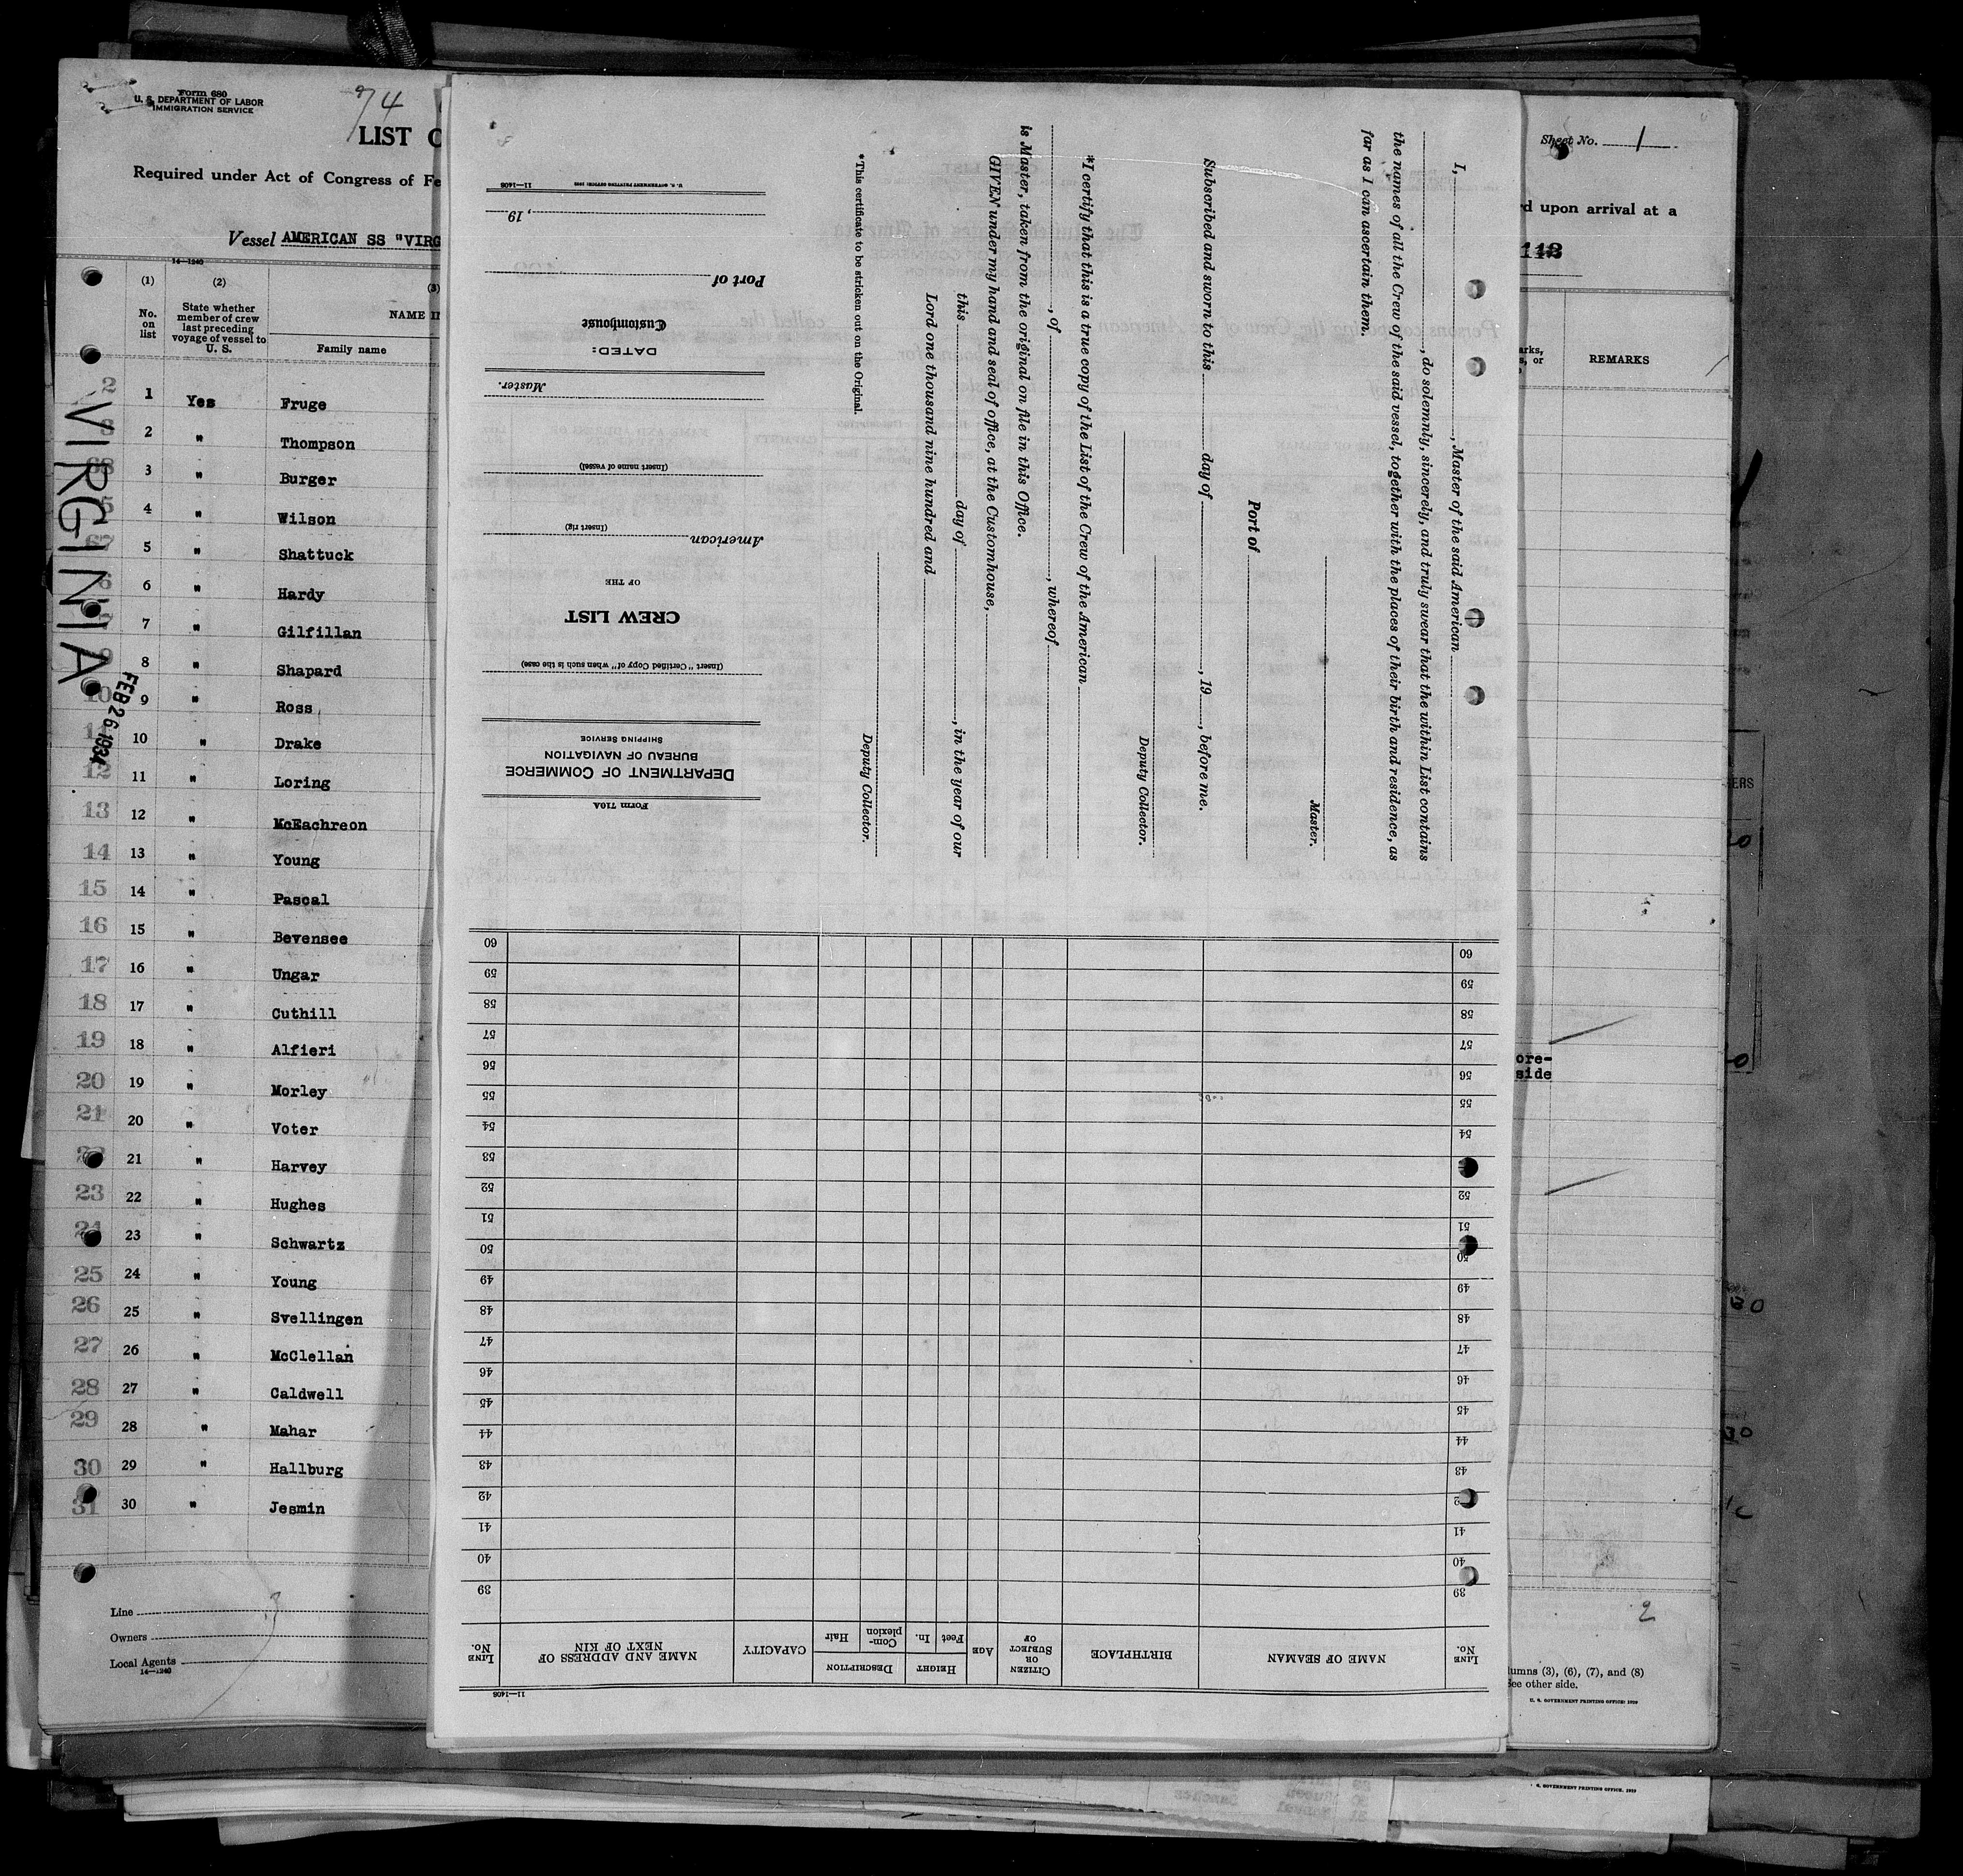 Form 680
U. S. DEPARTMENT OF LABOR
IMMIGRATION SERVICE
74
LIST
Required under Act of Congress of Fe
Vessel AMERICAN SS "VIRG
14—1240
(1)
(2)
(3)
No. on list
State whether member of crew last preceding voyage of vessel to U. S.
NAME I
Family name
VIRGINIA
FEB 26 1934
2 1 Yes Fruge
2 " Thompson
3 " Burger
4 " Wilson
5 " Shattuck
6 " Hardy
7 " Gilfillan
8 " Shapard
10 9 " Ross
11 10 " Drake
12 11 " Loring
13 12 " McEachreon
14 13 " Young
15 14 " Pascal
16 15 " Bevensee
17 16 " Ungar
18 17 " Cuthill
19 18 " Alfieri
20 19 " Morley
21 20 " Voter
21 " Harvey
23 22 " Hughes
24 23 " Schwartz
25 24 " Young
26 25 " Svellingen
27 26 " McClellan
28 27 " Caldwell
29 28 " Mahar
30 29 " Hallburg
31 30 " Jesmin
Line
Owners
Local Agents
14—1240
I, , Master of the said American
, do solemnly, sincerely, and truly swear that the within List contains
the names of all the Crew of the said vessel, together with the places of their birth and residence, as
far as I can ascertain them.
Master.
Port of
Subscribed and sworn to this day of , 19 , before me.
Deputy Collector.
*I certify that this is a true copy of the List of the Crew of the American
, of , whereof
is Master, taken from the original on file in this Office.
GIVEN under my hand and seal of office, at the Customhouse,
this day of , in the year of our
Lord one thousand nine hundred and
Deputy Collector.
*This certificate to be stricken out on the Original.
Form 710A
DEPARTMENT OF COMMERCE
BUREAU OF NAVIGATION
SHIPPING SERVICE
(Insert "Certified Copy of" when such is the case)
CREW LIST
OF THE
American
(Insert rig)
(Insert name of vessel)
Master.
DATED:
Customhouse
Port of
, 19
11—1408
11—1408
LINE No.
NAME OF SEAMAN
BIRTHPLACE
CITIZEN OR SUBJECT OF
AGE
HEIGHT
Feet
In.
DESCRIPTION
Complexion
Hair
CAPACITY
NAME AND ADDRESS OF NEXT OF KIN
LINE No.
39 39
40 40
41 41
42
43 43
44 44
45 45
46 46
47 47
48 48
49 49
50 50
51 51
52 52
53
54 54
55 55
56 56
57 57
58 58
59 59
60 60
Sheet No. 1
rd upon arrival at a
113
arks,
s, or
REMARKS
ore-
side
2
lumns (3), (6), (7), and (8)
See other side.
U. S. GOVERNMENT PRINTING OFFICE: 1929